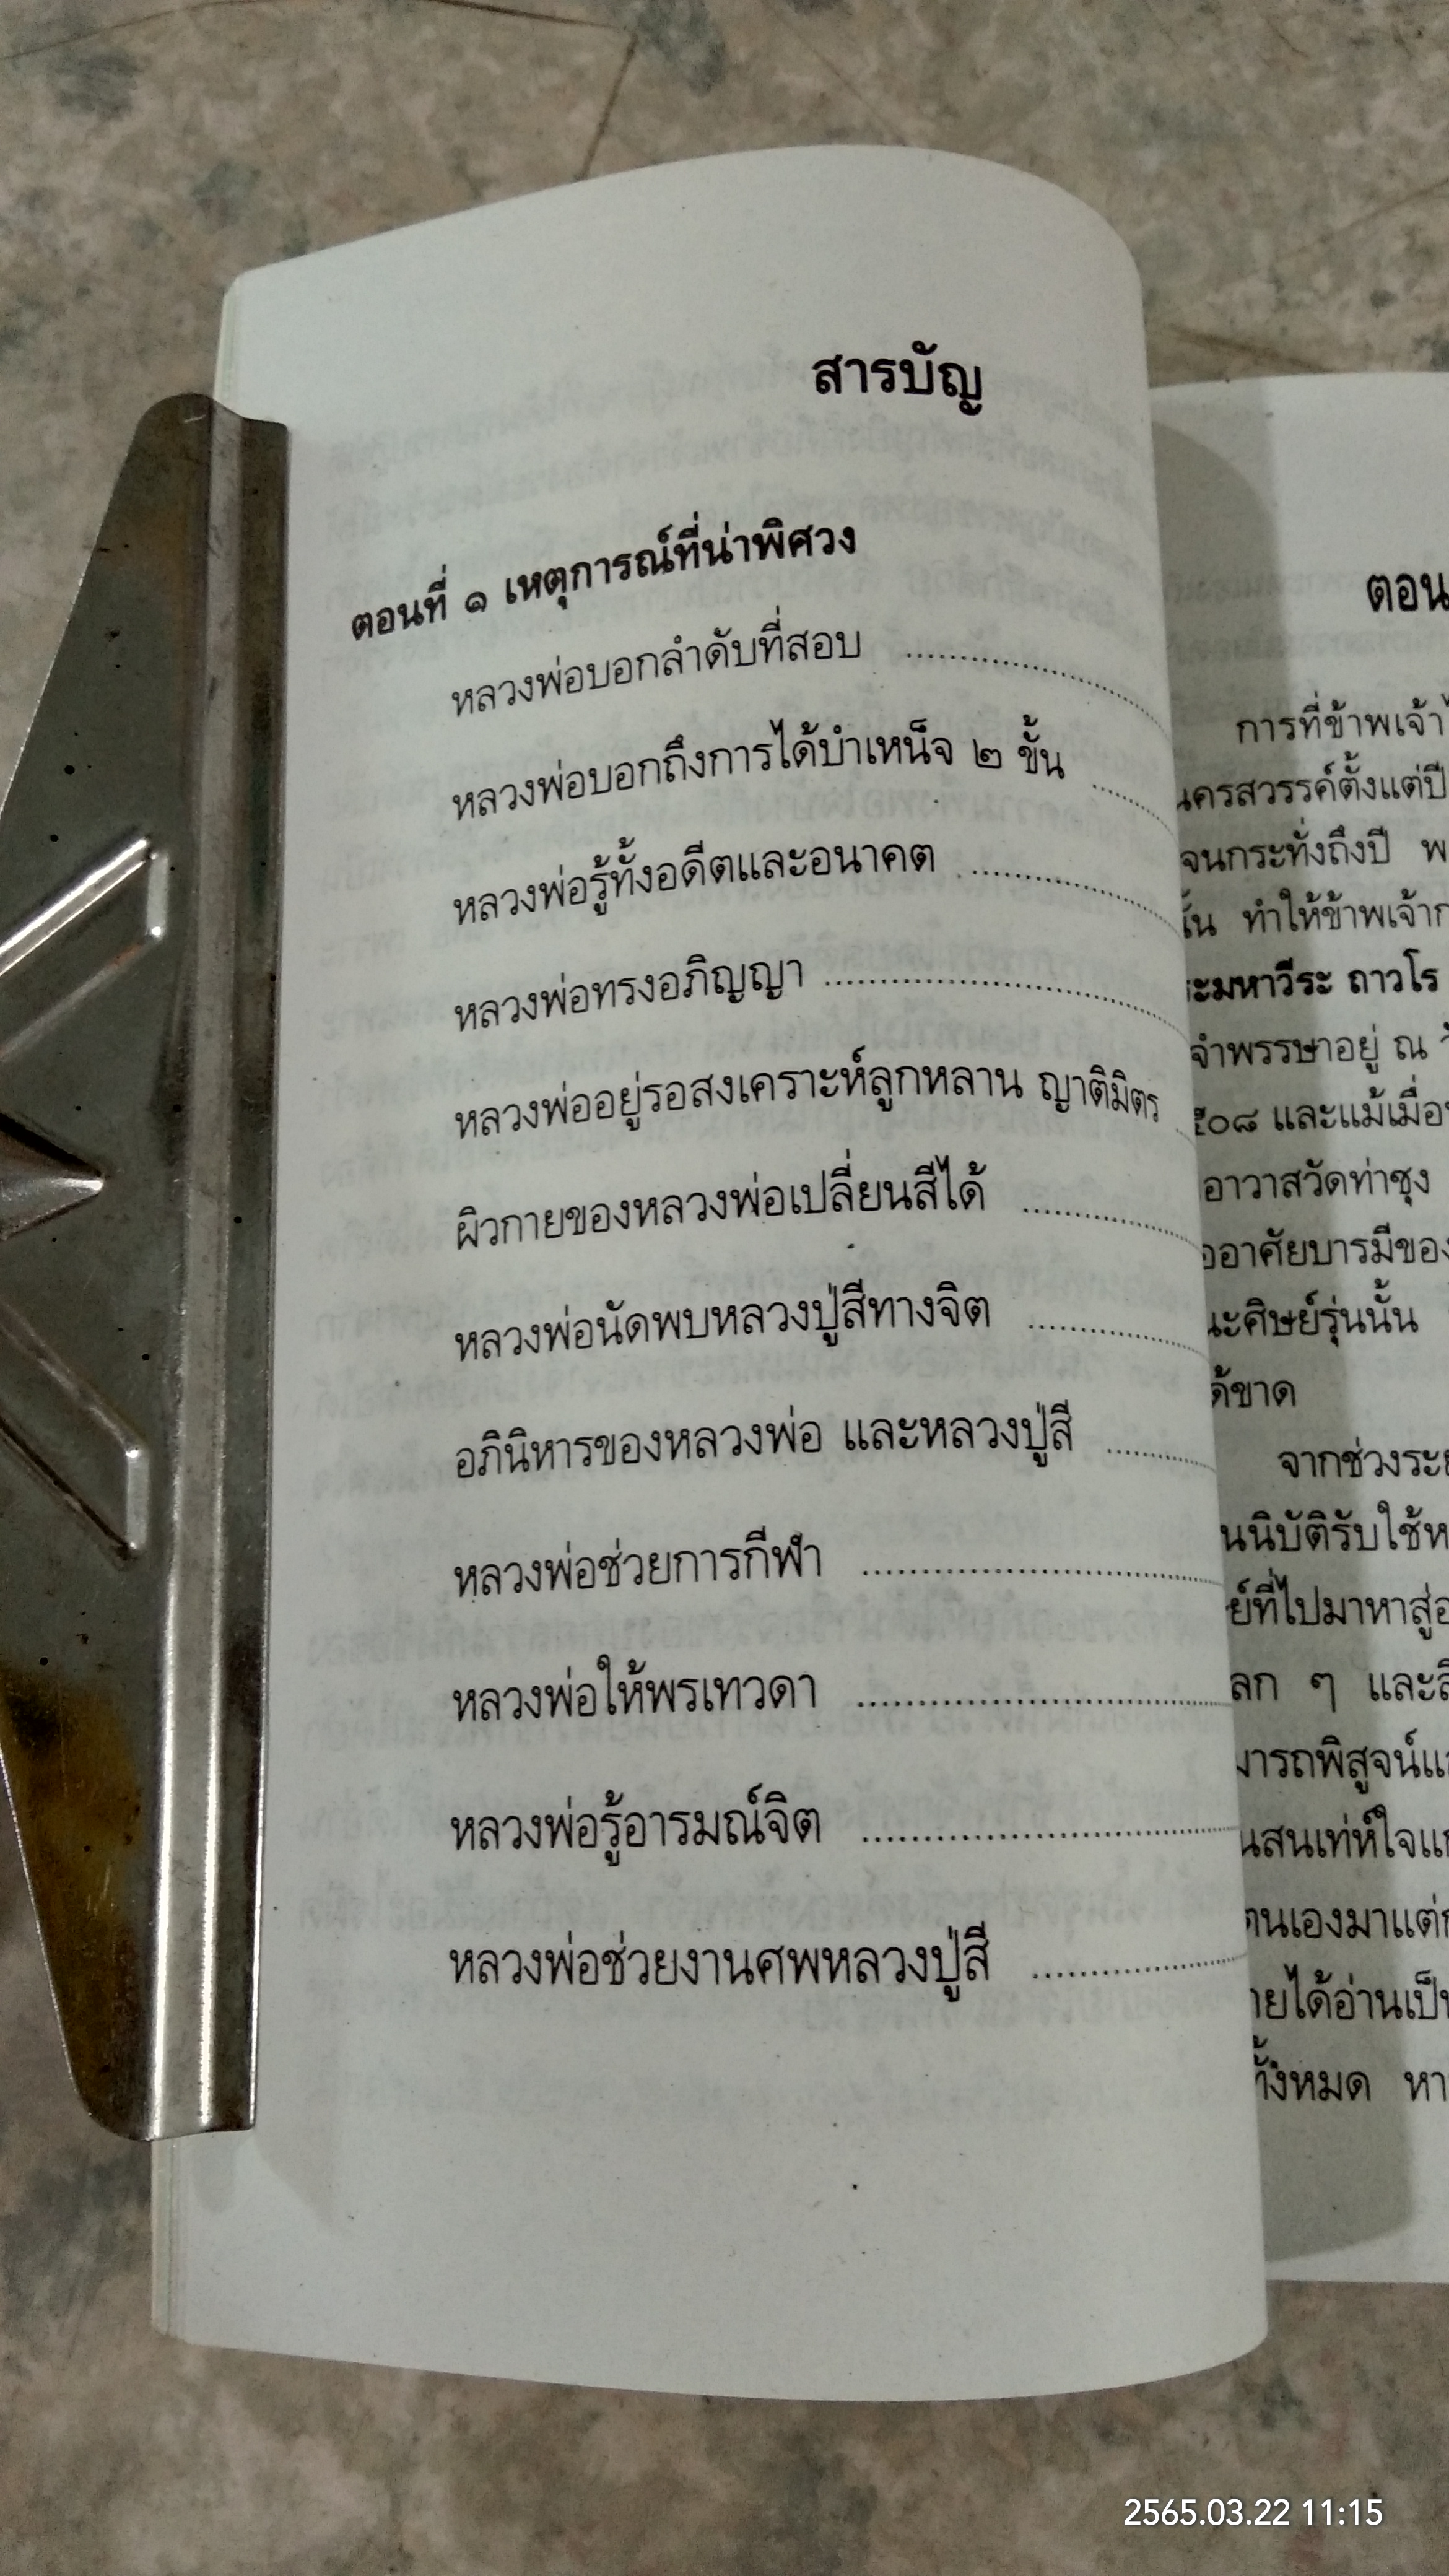 สารบัญ
ตอนที่ ๑ เหตุการณ์ที่น่าพิศวง
หลวงพ่อบอกลำดับที่สอบ ........................
หลวงพ่อบอกถึงการได้บำเหน็จ ๒ ขั้น ..........
หลวงพ่อรู้ทั้งอดีตและอนาคต ....................
หลวงพ่อทรงอภิญญา ..............................
หลวงพ่ออยู่รอสงเคราะห์ลูกหลาน ญาติมิตร
ผิวกายของหลวงพ่อเปลี่ยนสีได้ ..................
หลวงพ่อนัดพบหลวงปู่สีทางจิต ..................
อภินิหารของหลวงพ่อ และหลวงปู่สี ............
หลวงพ่อช่วยการกีฬา ..............................
หลวงพ่อให้พรเทวดา ..............................
หลวงพ่อรู้อารมณ์จิต ..............................
หลวงพ่อช่วยงานศพหลวงปู่สี ....................
ตอน
การที่ข้าพเจ้า
นครสวรรค์ตั้งแต่ปี
จนกระทั่งถึงปี พ
ทำให้ข้าพเจ้า
ะมหาวีระ ถาวโร
จำพรรษาอยู่ ณ
๕๐๘ และแม้เมื่อ
อาวาสวัดท่าซุง
ออาศัยบารมีของ
ะศิษย์รุ่นนั้น
ด้ขาด
จากช่วงระย
นนิบัติรับใช้ห
ย์ที่ไปมาหาสู่
ลก ๆ และสิ
มารถพิสูจน์แ
นสนเท่ห์ใจแก
ตนเองมาแต่
ายได้อ่านเป็น
ทั้งหมด หา
2565.03.22 11:15